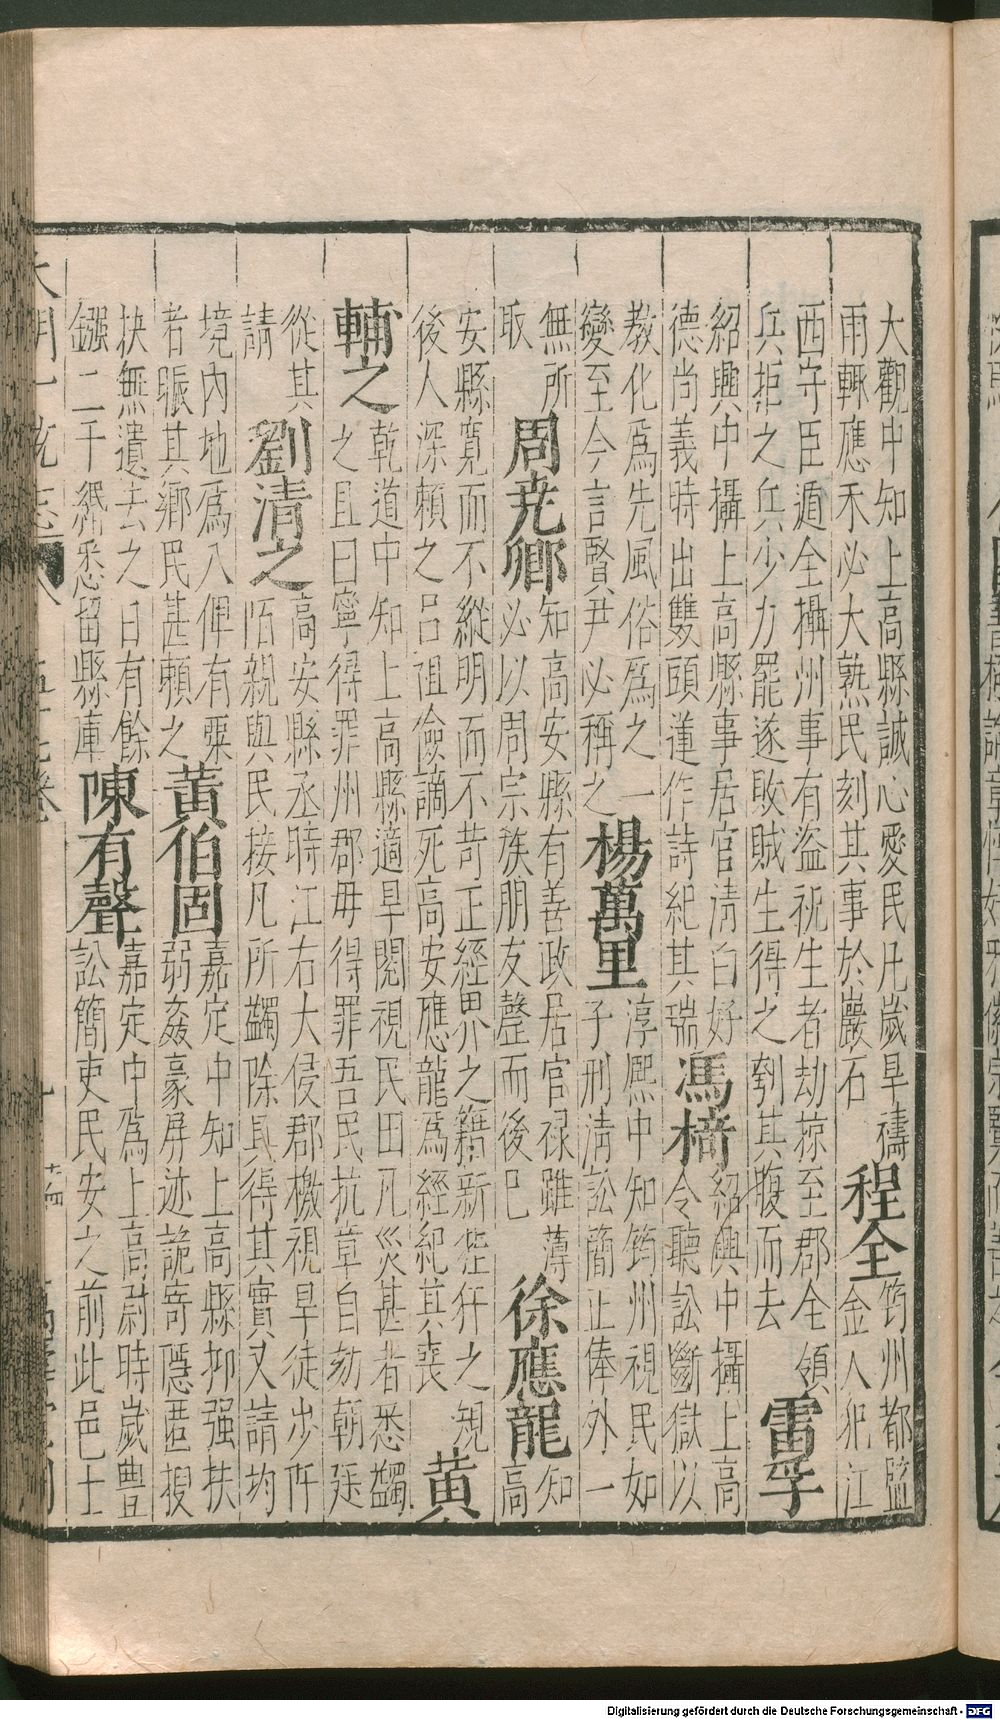 大觀中知上高縣誠心愛民凡歲旱禱
雨輒應禾必大熟民刻其事於巖石
程全
筠州都監
金人犯江
西守臣遁全攝州事有盗祝生者劫掠至郡全領
兵拒之兵少力罷遂敗賊生得之刳其腹而去
雷孚
紹興中攝上高縣事居官清白好
德尚義時出雙頭蓮作詩紀其瑞
馮椅
紹興中攝上高
令聽訟斷獄以
教化爲先風俗爲之一
變至今言賢尹必稱之
楊萬里
淳熈中知筠州視民如
子刑清訟簡止俸外一
無所
取
周尭卿
知高安縣有善政居官禄雖薄
必以周宗族朋友罄而後已
徐應龍
知
高
安縣寛而不縱明而不苛正經界之籍新狴犴之規
後人深賴之吕祖儉謫死高安應龍爲經紀其喪
黄
輔之
乾道中知上高縣適旱閱視民田凡災甚者悉蠲
之且曰寧得罪州郡毋得罪吾民抗章自劾朝廷
從其
請
劉清之
高安縣丞時江右大侵郡檄視旱徒步阡
陌親與民接凡所蠲除具得其實又請均
境内地爲八俾有粟
者賑其鄉民甚賴之
黄伯固
嘉定中知上高縣抑强扶
弱姦豪屏迹詭竒隱匿搜
抉無遺去之日有餘
鏹二千緡悉留縣庫
陳有聲
嘉定中爲上高尉時歲豊
訟簡吏民安之前此邑士
大明一統志
Digitalisierung gefördert durch die Deutsche Forschungsgemeinschaft - DFG